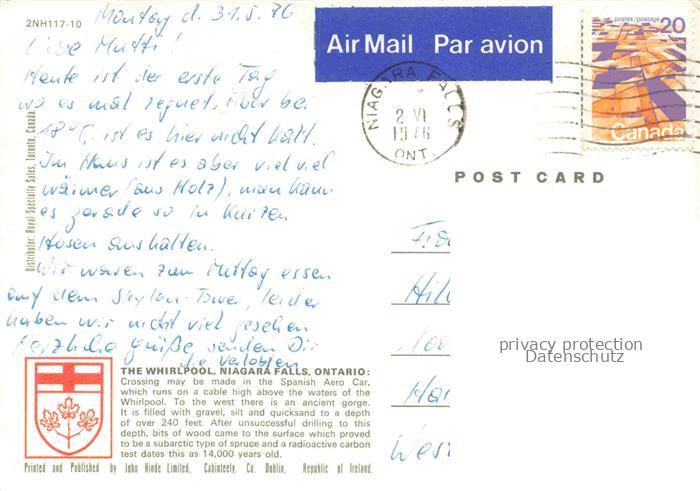 2NH117-10
Montag d. 31.5.76
Liebe Mutti!
Heute ist der erste Tag
wo es mal regnet, aber bei
18°C ist es hier nicht kalt.
Im Haus ist es aber viel viel
wärmer (aus Holz), man kann
es gerade so in kurzen
Hosen aushalten.
Wir waren zum Mittag essen
auf dem Skylon-Tower, leider
haben wir nicht viel gesehen
Herzliche Grüße senden Dir
die Verlobten
Distributor: Royal Specialty Sales, Toronto, Canada
Air Mail Par avion
NIAGARA FALLS
2 VI
1976
ONT.
postes/postage
20
Canada
POST CARD
Hil
Wes
privacy protection
Datenschutz
THE WHIRLPOOL, NIAGARA FALLS, ONTARIO:
Crossing may be made in the Spanish Aero Car,
which runs on a cable high above the waters of the
Whirlpool. To the west there is an ancient gorge.
It is filled with gravel, silt and quicksand to a depth
of over 240 feet. After unsuccessful drilling to this
depth, bits of wood came to the surface which proved
to be a subarctic type of spruce and a radioactive carbon
test dates this as 14,000 years old.
Printed and Published by John Hinde Limited, Cabinteely, Co. Dublin, Republic of Ireland.